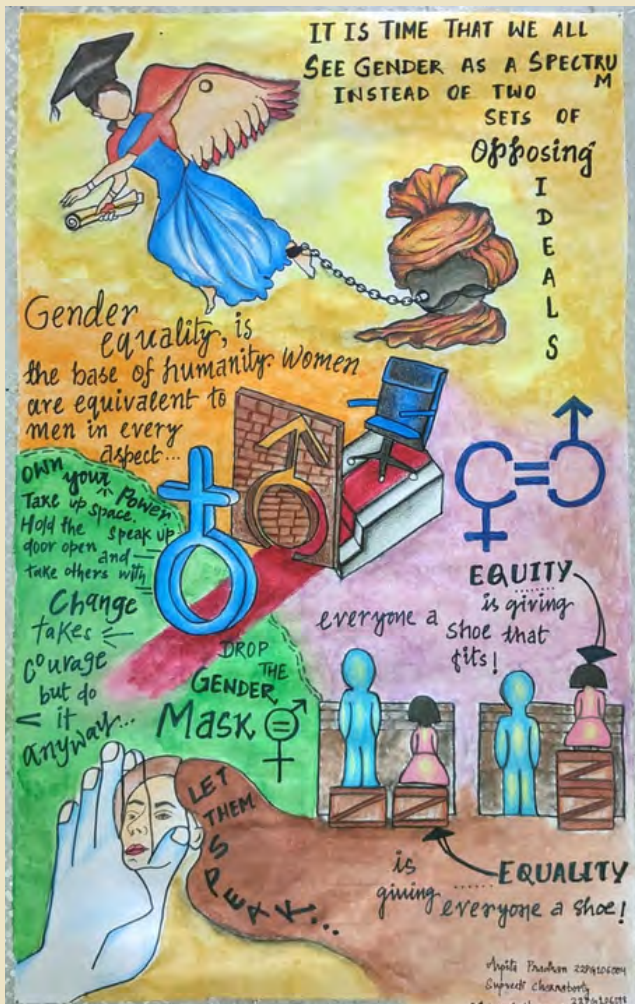 IT IS TIME THAT WE ALL
SEE GENDER AS A SPECTRUM
INSTEAD OF TWO
SETS OF
Opposing
IDEALS
Gender
equality, is
the base of humanity. Women
are equivalent to
men in every
aspect...
Own your Power
Take up space.
Hold the speak up
door open and
take others with
Change
takes
courage
but do
it
anyway...
DROP
THE
GENDER
Mask
EQUITY
is giving
everyone a
shoe that
fits!
LET
THEM
SPEAK...
EQUALITY
is
giving ...... everyone a shoe!
Arpita Pradhan 22PG106004